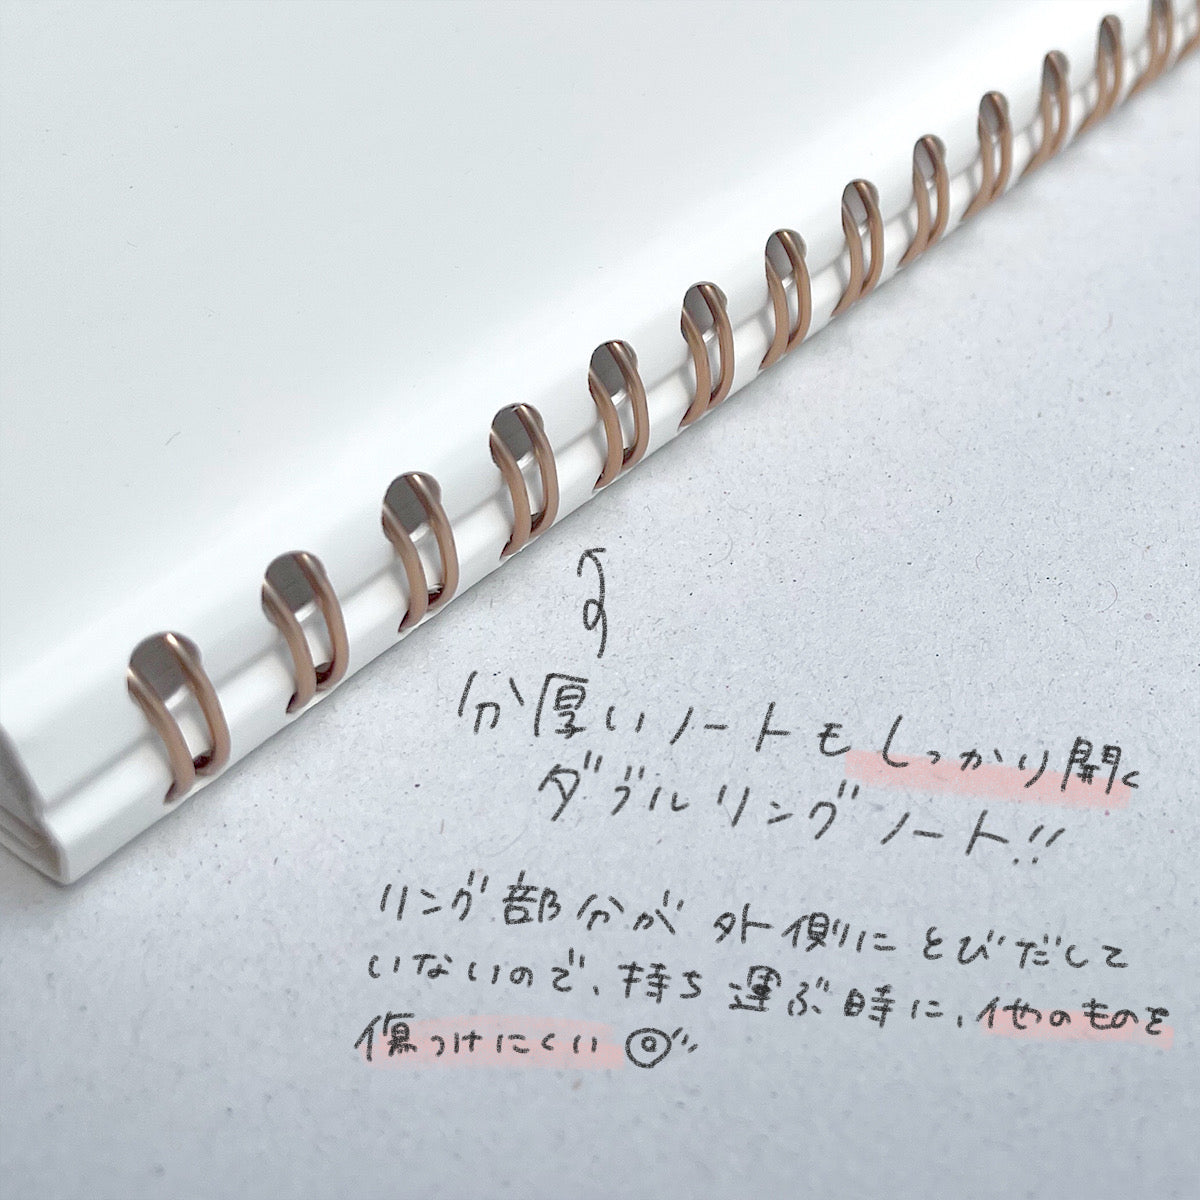 分厚いノートもしっかり開く
ダブルリングノート!!
リング部分が外側にとびだして
いないので、持ち運ぶ時に、他のものを
傷つけにくい◎